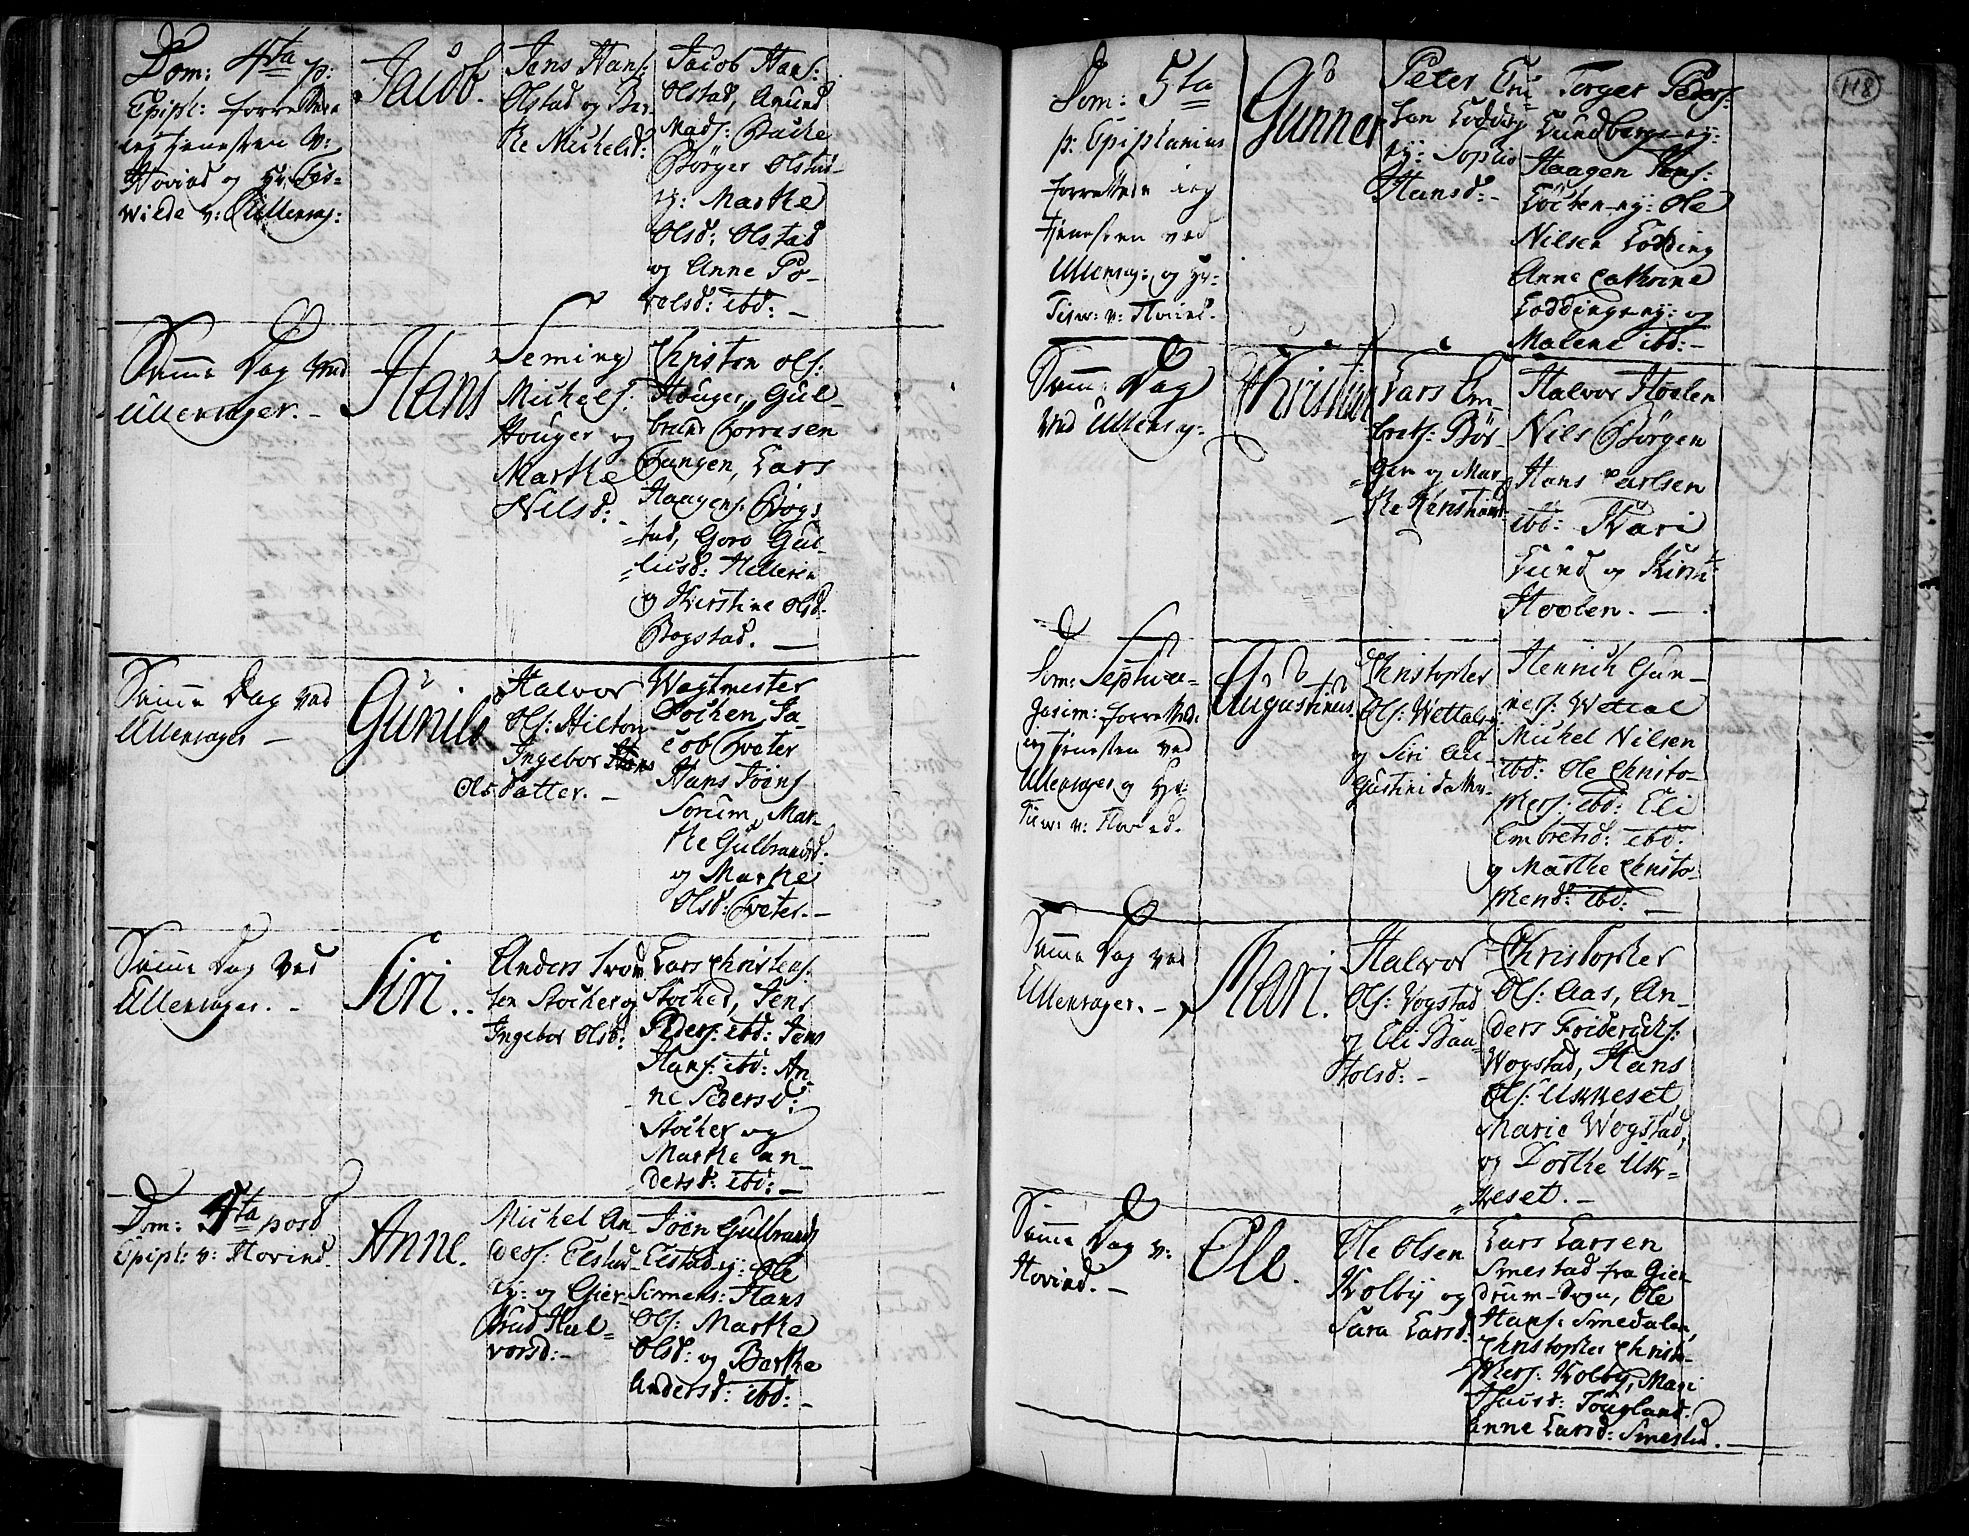 Dom: 4ta p:
Epiph: forrettede
ieg Tienesten v:
Hovind og Hr: Tid=
wilde v: Ullensag:
Jacob.
Jens Hans:
Olstad og Ber
the Michelsd:
Jacob Hans:
Olstad, Amund
Mads: Bache
Börger Olstad
ny: Marthe
Olsd: Olstad
og Anne Po-
velsd: ibd: –
Samme Dag ved
Ullensager. –
Hans
Seming
Michels:
Houger og
Marthe
Nilsd:
Christen Ols:
Houger, Gul-
brand Borresen
Bangen, Lars
Haagens: Bogs
tad, Goro Gul-
liusd: Helleren
og Kirstine Olsd:
Bogstad. –
Samme Dag ved
Ullensager –
Gunild
Halvor
Ols: Hilton
Ingebor
Olsdatter. –
Wagtmester
Dochen, Ja-
cob Tveter
Hans Joens
Sorum, Mar-
the Gulbrandsd:
og Marthe
Olsd: Tveter. –
Samme Dag ved
Ullensager. –
Siri.
Anders Iver
sen Stocker og
Ingebor Olsd:
Lars Christens:
Stocker, Jens
Peders: ibd: Jens
Hans: ibd: An-
ne Pedersd:
Stocker og
Marthe An-
dersd: ibd: –
Dom: 4ta post
Epiph: v: Hovind.
Anne.
Michel An-
ders: Elstad
ny: og Gier-
trud Hal=
vorsd: –
Joen Gulbrands
Elstad ny: Ole
Simens: Hans
Ols: Marthe
Olsd: og Berthe
Andersd: ibd: –
118
Dom: 5ta
p: Epiphanias
forrettede ieg
Tienesten ved
Ullensag: og Hr:
Tidw: v: Hovind.
Gunner
Peter Eri
sen Lodding
ny: Sophie
Hansd: –
Torger Peders:
Lundberg ny:
Haagen Hans:
Löcken ny: Ole
Nilsen Lodding
Anne Cathrine
Loddings ny: og
Malene ibd: –
Samme Dag
ved Ullensag:
Christian
Lars Em-
brets: Bör-
gen og Mar-
the Christians
Halvor Hoolen
Nils Börgen
Hans Carlsen
ibd: Kari
Lund og Kirst:
Hoolen. –
Dom: Septua-
gesim: forrettede
ieg Tienesten ved
Ullensager og Hr:
Tidw: v: Hovind.
Augustinus.
Christopher
Ols: Wettal
og Siri Au-
gustini datter.
Henrich Gun-
ners: Wettal
Michel Nilsen
ibd: Ole Christo-
phers: ibd: Eli
Embretsd: ibd:
og Marthe Christo-
phersd: ibd: –
Samme Dag ved
Ullensager. –
Mari.
Halvor
Ols: Vogstad
og Eli Baa-
rolsd: –
Christopher
Ols: Aas, An-
ders Friderichs:
Wogstad, Hans
Ols: Ukkeset
Marie Wogstad,
og Dorthe Uk-
keset. –
Samme Dag v:
Hovind. –
Ole.
Ole Olsen
Kolby og
Sara Larsd:
Lars Larsen
Smestad fra Gier
drum Sogn, Ole
Hans: Smedalen,
Christopher Christo-
phers: Kolby, Mari
Jougland.
Anne Larsd: Smestad. –